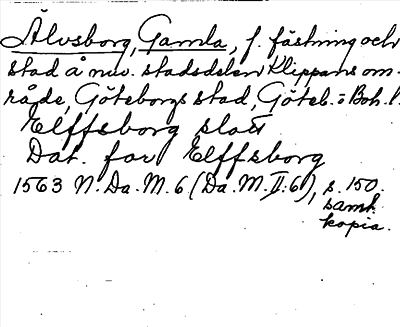 Älvsborg, Gamla, f. fästning och
stad å nuv. stadsdelen Klippans om-
råde, Göteborgs stad, Göteb. o Boh. l.
Elffsborg slott
Dat. far Elffsborg
1563 N. Da. M. 6 (Da. M. II:6), s. 150.
samt
kopia.